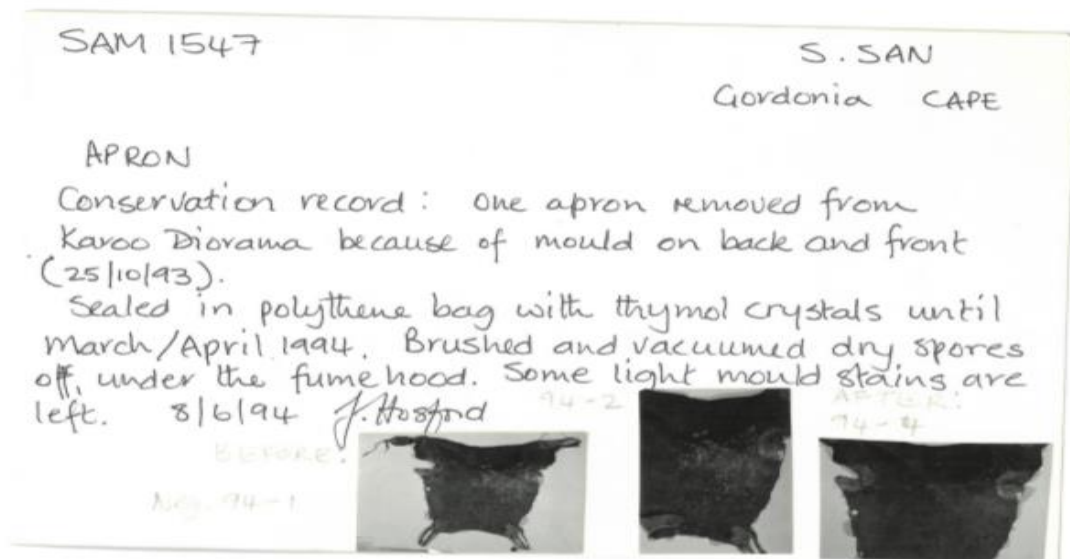 SAM 1547
S. SAN
Gordonia CAPE
APRON
Conservation record : One apron removed from
Karoo Diorama because of mould on back and front
(25/10/93).
Sealed in polythene bag with thymol crystals until
March/April 1994. Brushed and vacuumed dry spores
off, under the fume hood. Some light mould stains are
left. 8/6/94 J. Hosford
94-2
AFTER:
94-4
BEFORE:
Neg. 94-1